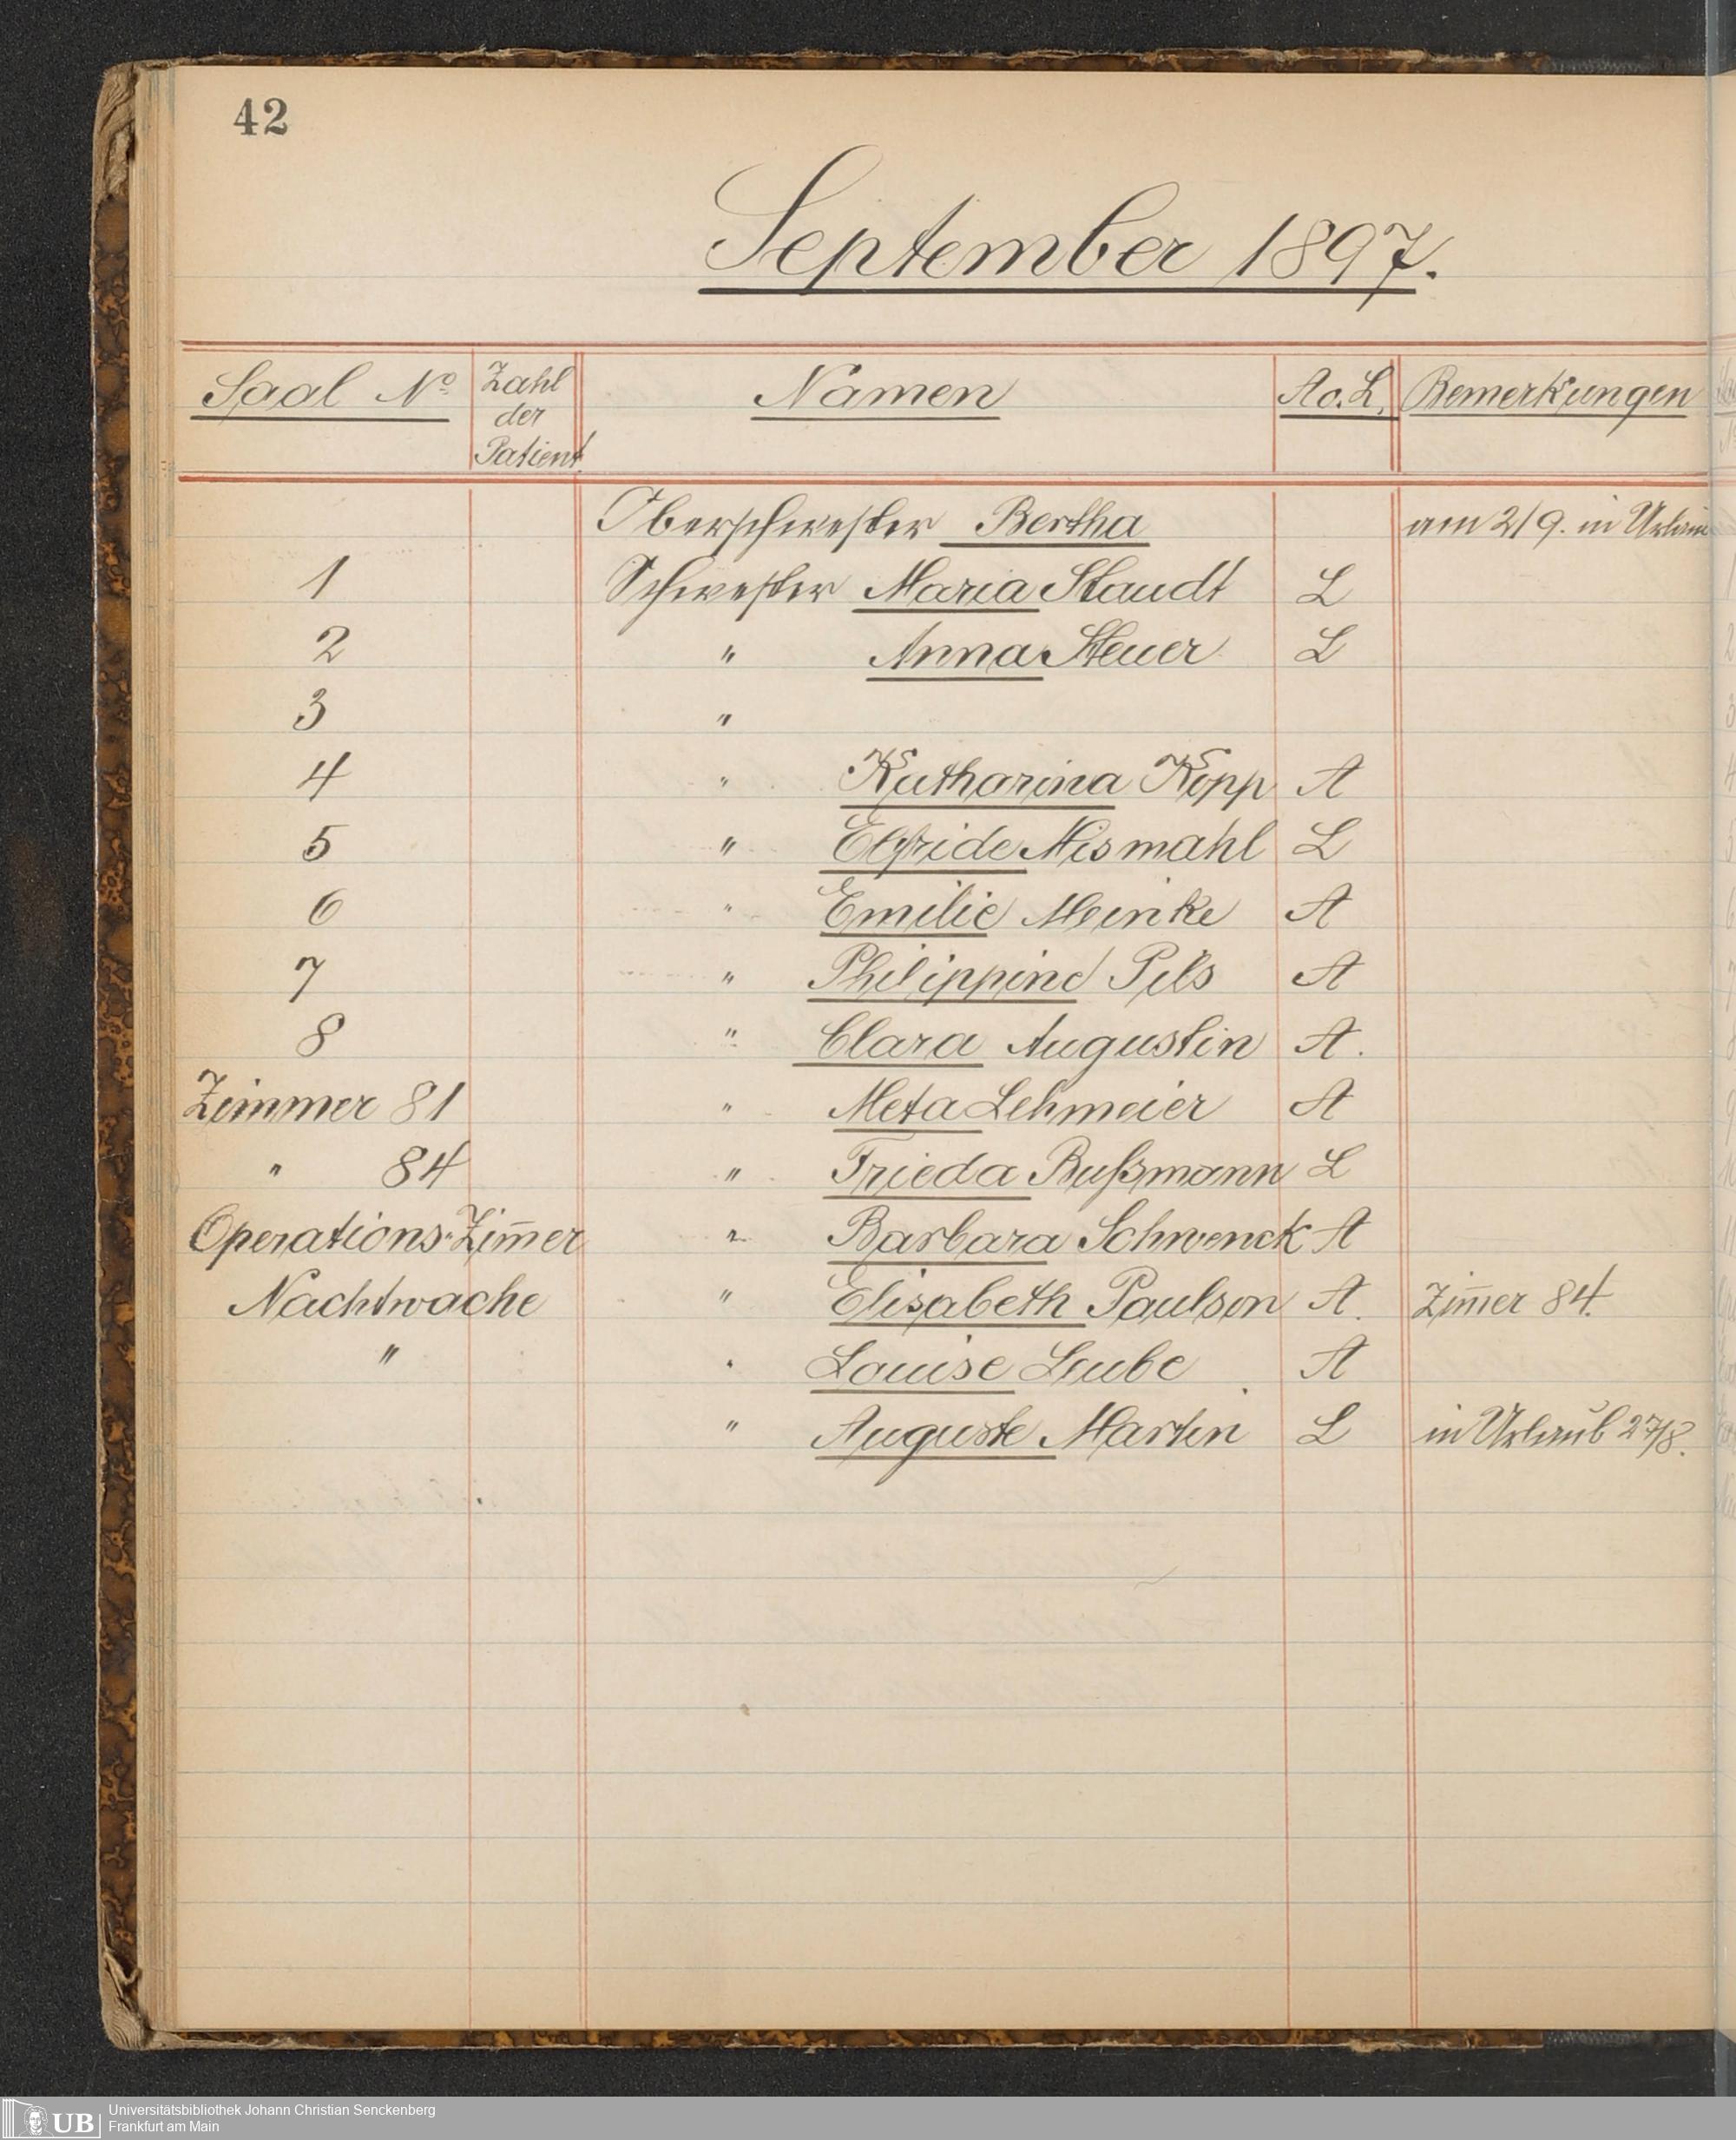 42
September 1897.
Saal No Zahl der Patient. Namen A o. L. Bemerkungen
Oberschwester Bertha am 2/9. in Urlaub
1 Schwester Maria Staudt L
2 " Anna Steuer L
3 "
4 " Katharina Kopp A
5 " Elfride Nismahl L
6 " Emilie Meinke A
7 " Philippine Pils A
8 " Clara Augustin A.
Zimmer 81 " Meta Lehmeier A
" 84 " Frieda Bußmann L
Operations-Zim̄er " Barbara Schwenck A
Nachtwache " Elisabeth Paulson A. Zim̄er 84.
" " Louise Leube A
" Auguste Martin L in Urlaub 27/8.
UB Universitätsbibliothek Johann Christian Senckenberg
Frankfurt am Main